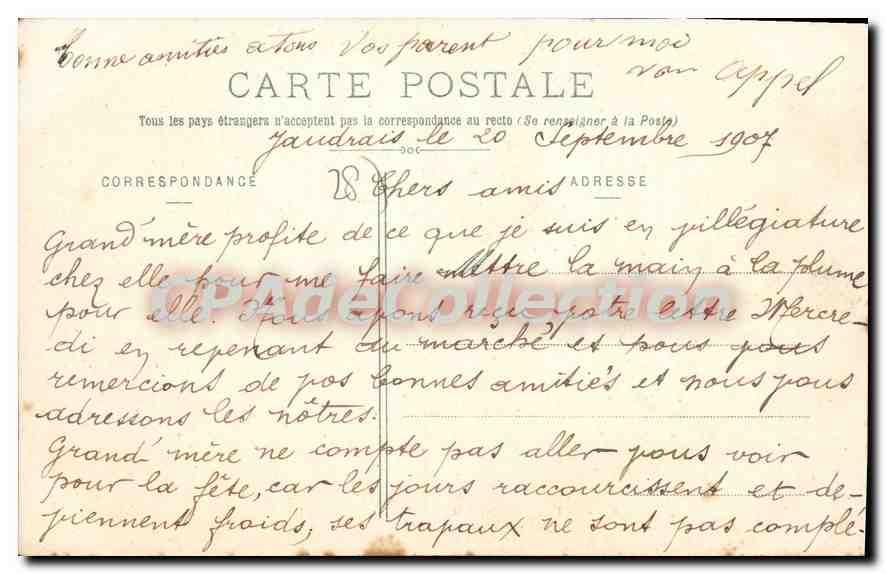 bonne amitiés a tous Vos parent pour moi
CARTE POSTALE
Tous les pays étrangers n'acceptent pas la correspondance au recto (Se renseigner à la Poste)
Jaudrais le 20 Septembre 1907
CORRESPONDANCE
ADRESSE
28
Chers amis
Grand'mère profite de ce que je suis en villégiature
chez elle pour me faire mettre la main à la plume
CPAdeCollection
pour elle. Nous avons reçu votre lettre Mercre-
di en revenant du marché et nous vous
remercions de vos bonnes amitiés et nous vous
adressons les nôtres.
Grand'mère ne compte pas aller vous voir
pour la fête, car les jours raccourcissent et de-
viennent froids, ses travaux ne sont pas complé-